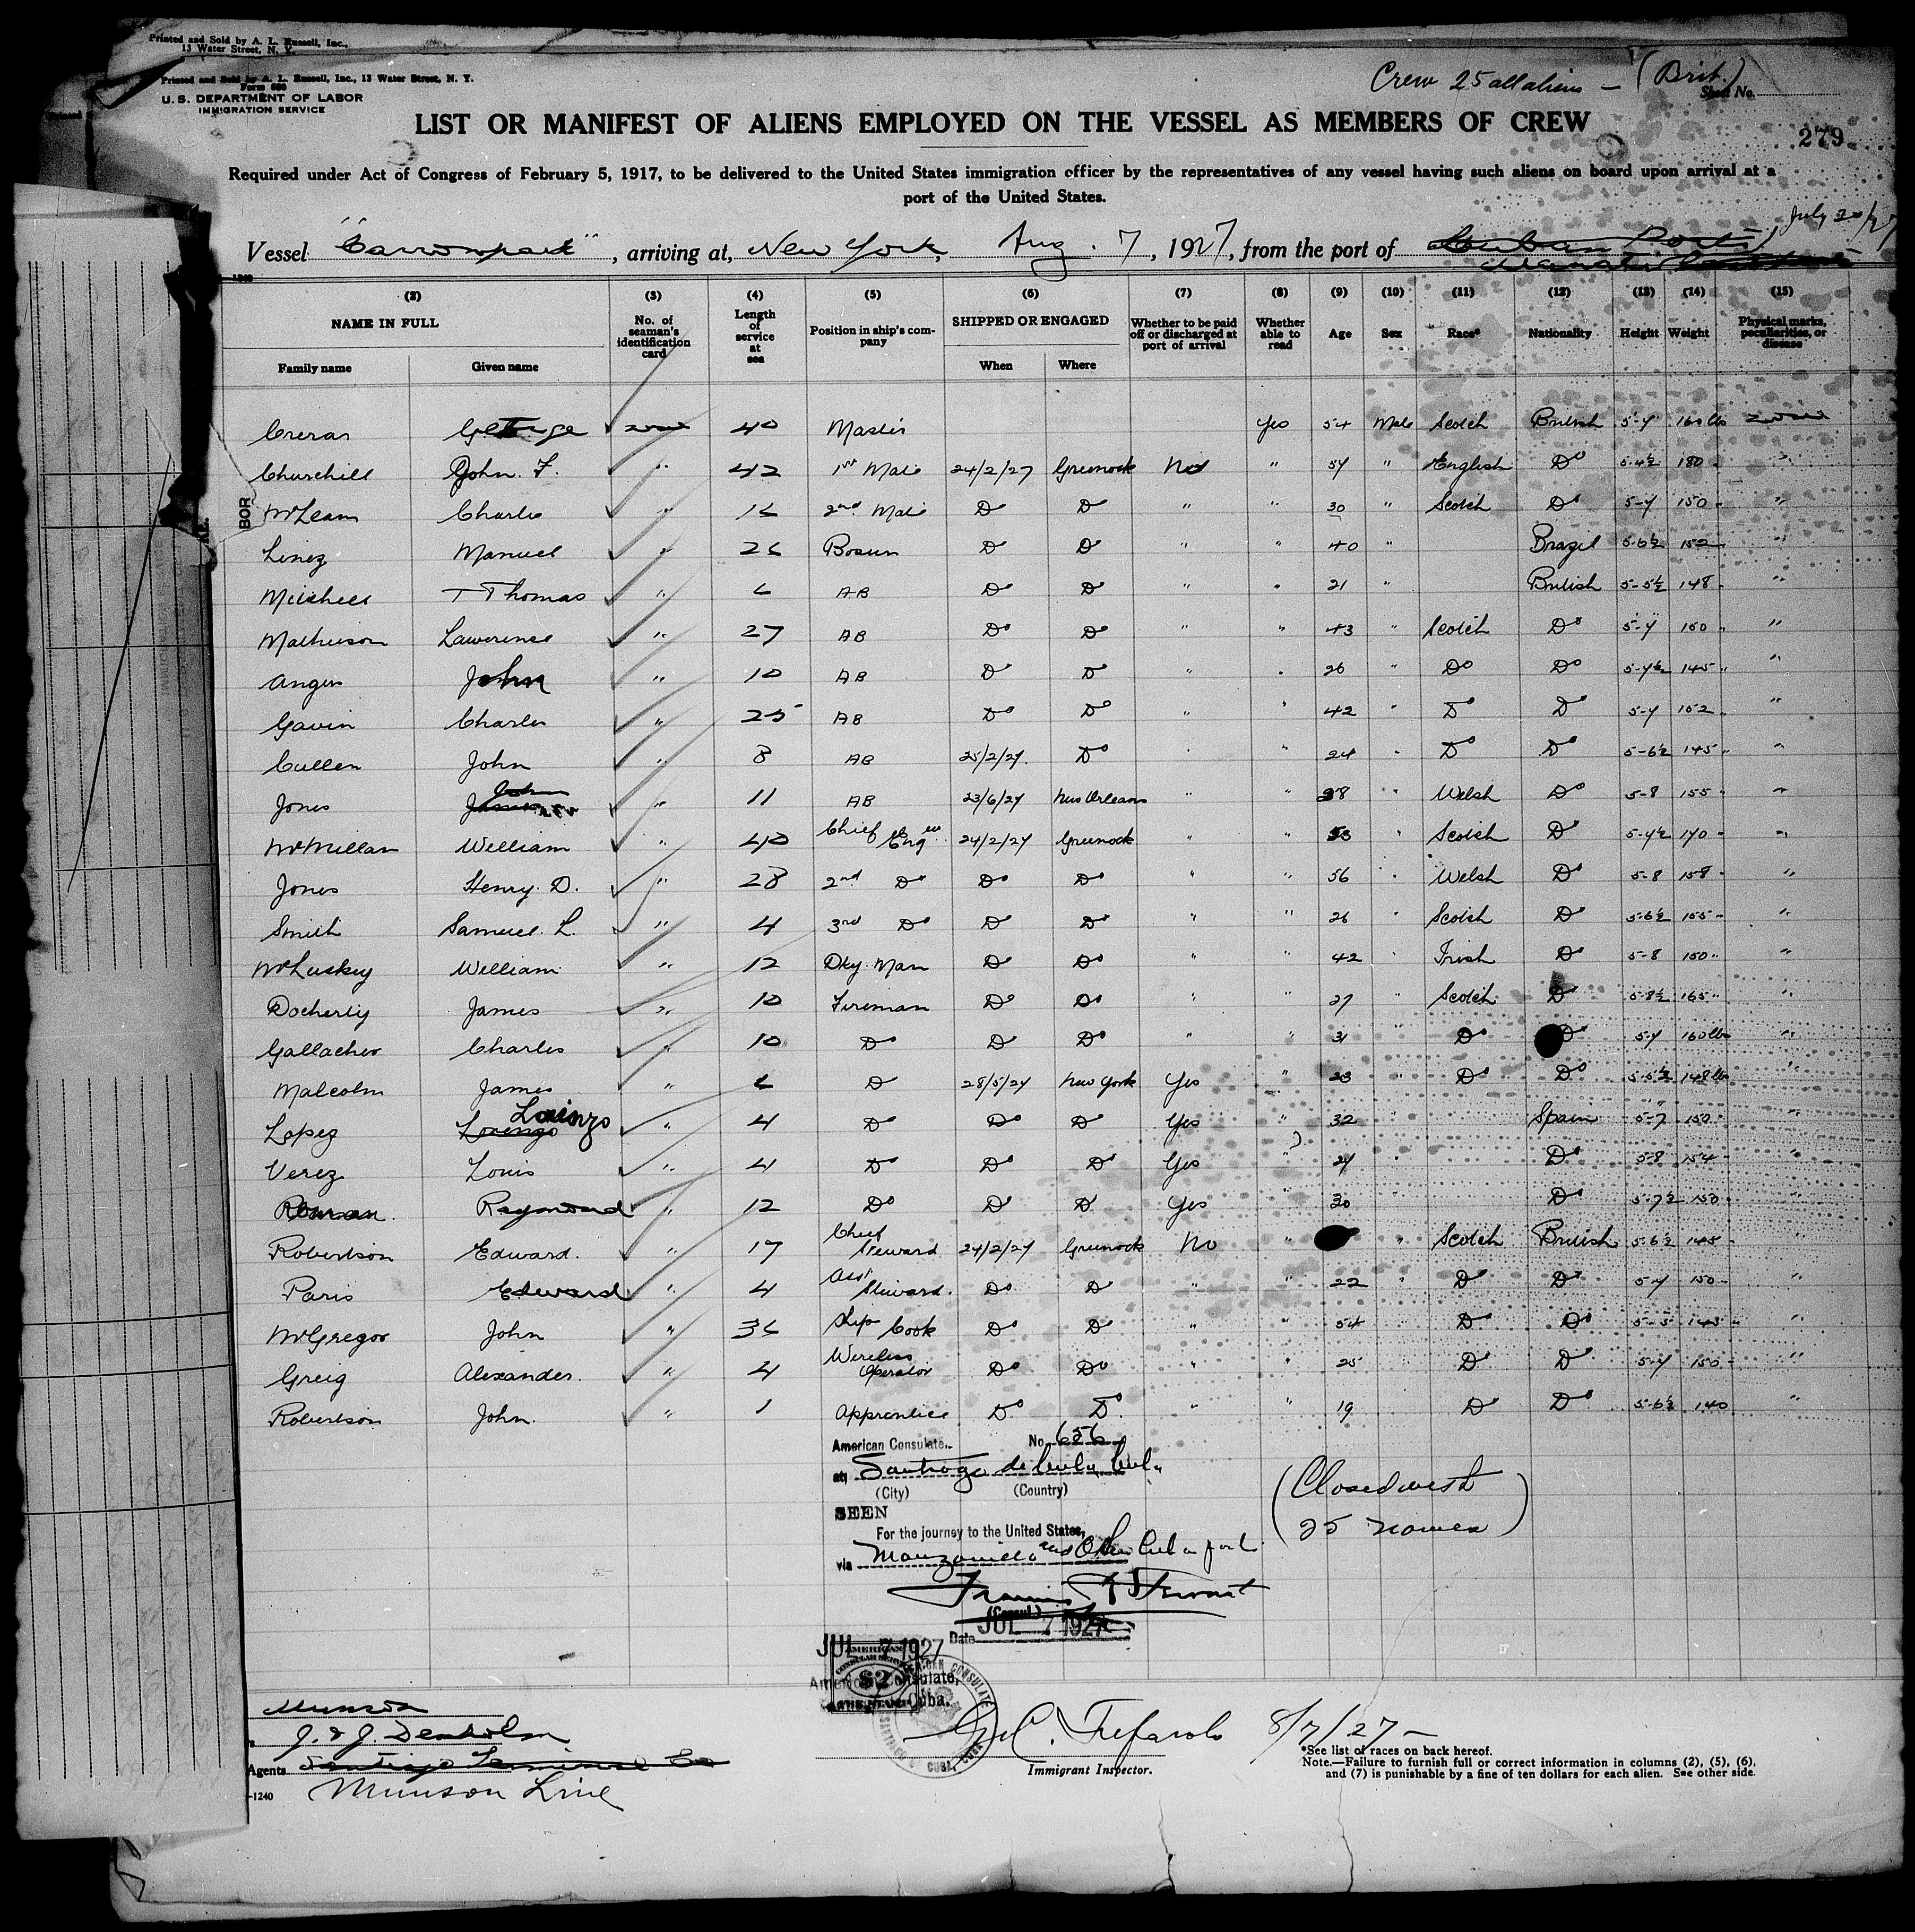 Printed and Sold by A. L. Russell, Inc.,
13 Water Street, N. Y.
Printed and Sold by A. L. Russell, Inc., 13 Water Street, N. Y.
Form 680
U. S. DEPARTMENT OF LABOR
IMMIGRATION SERVICE
Crew 25 all aliens – (Brit.)
Sheet No.
LIST OR MANIFEST OF ALIENS EMPLOYED ON THE VESSEL AS MEMBERS OF CREW
279
Required under Act of Congress of February 5, 1917, to be delivered to the United States immigration officer by the representatives of any vessel having such aliens on board upon arrival at a
port of the United States.
July 20/27
Vessel "Carronpark", arriving at, New York, Aug. 7, 1927, from the port of Cuban Ports
(2) (3) (4) (5) (6) (7) (8) (9) (10) (11) (12) (13) (14) (15)
NAME IN FULL No. of seaman's identification card Length of service at sea Position in ship's company SHIPPED OR ENGAGED Whether to be paid off or discharged at port of arrival Whether able to read Age Sex Race* Nationality Height Weight Physical marks, peculiarities, or disease
Family name Given name When Where
Crerar George 40 Master Yes 54 Male Scotch British 5-7 160 lbs
Churchill John. F. " 42 1st Mate 24/2/27 Greenock No " 57 " English Do 5-4½ 180 "
McLean Charles " 16 2nd Mate Do Do " " 30 " Scotch Do 5-7 150 "
Linez Manuel " 26 Bosun Do Do " " 40 " Brazil 5-6½ 152 "
Mitchell Thomas " 6 AB Do Do " " 21 " British 5-5½ 148 "
Mathieson Lawerence " 27 AB Do Do " " 43 " Scotch Do 5-7 150 "
Angus John " 10 AB Do Do " " 26 " Do Do 5-7½ 145 "
Gavin Charles " 25 AB Do Do " " 42 " Do Do 5-7 152 "
Cullen John " 8 AB 25/2/27. Do " " 24 " Do Do 5-6½ 145 "
Jones John " 11 AB 23/6/27 New Orleans " " 38 " Welsh Do 5-8 155 "
McMillan William " 40 Chief Engr 24/2/27 Greenock " " 53 " Scotch Do 5-7½ 170 "
Jones Henry. D. " 28 2nd Do Do Do " " 56 " Welsh Do 5-8 158 "
Smith Samuel. L. " 4 3rd Do Do Do " " 26 " Scotch Do 5-6½ 155 "
McLuskey William " 12 Dky. Man Do Do " " 42 " Irish Do 5-8 150 "
Docherty James " 10 Fireman Do Do " " 27 Scotch Do 5-8½ 165 "
Gallacher Charles " 10 Do Do Do " " 31 " Do Do 5-7 160 lbs "
Malcolm James " 6 Do 28/5/27 New York Yes " 23 " Do Do 5-5½ 148 lbs "
Lopez Lorenzo Lorinzo " 4 Do Do Do Yes " 32 " Spain 5-7 150 "
Verez Louis " 4 Do Do Do Yes " 27 " Do 5-8 154 "
Roman. Raymond " 12 Do Do Do Yes " 30 " Do 5-7½ 150 "
Robertson Edward. " 17 Chief Steward 24/2/27 Greenock No " " Scotch British 5-6½ 145 "
Paris Edward " 4 Asst Steward. Do Do " " 22 " Do Do 5-7 150 "
McGregor John " 36 Ship Cook Do Do " " 54 " Do Do 5-5 145 "
Greig Alexander. " 4 Wireless Operator Do Do " " 25 Do Do 5-7 150 "
Robertson John. " 1 Apprentice Do Do " " 19 Do Do 5-6½ 140 "
American Consulate. No. 656
at Santiago de Cuba, Cuba
(City) (Country)
SEEN
For the journey to the United States,
via Manzanillo and Other Cuban ports
(Closed west
25 names)
(Consul)
Date JUL 7 1927
JUL 7 1927
AMERICAN CONSULAR SERVICE
$2
FEE STAMP
American Consulate,
Cuba.
Munson
J. & J. Denholm
Agents Santiago Terminal Co
Munson Line
8/7/27 –
Immigrant Inspector.
*See list of races on back hereof.
Note.—Failure to furnish full or correct information in columns (2), (5), (6),
and (7) is punishable by a fine of ten dollars for each alien. See other side.
-1240
BOR